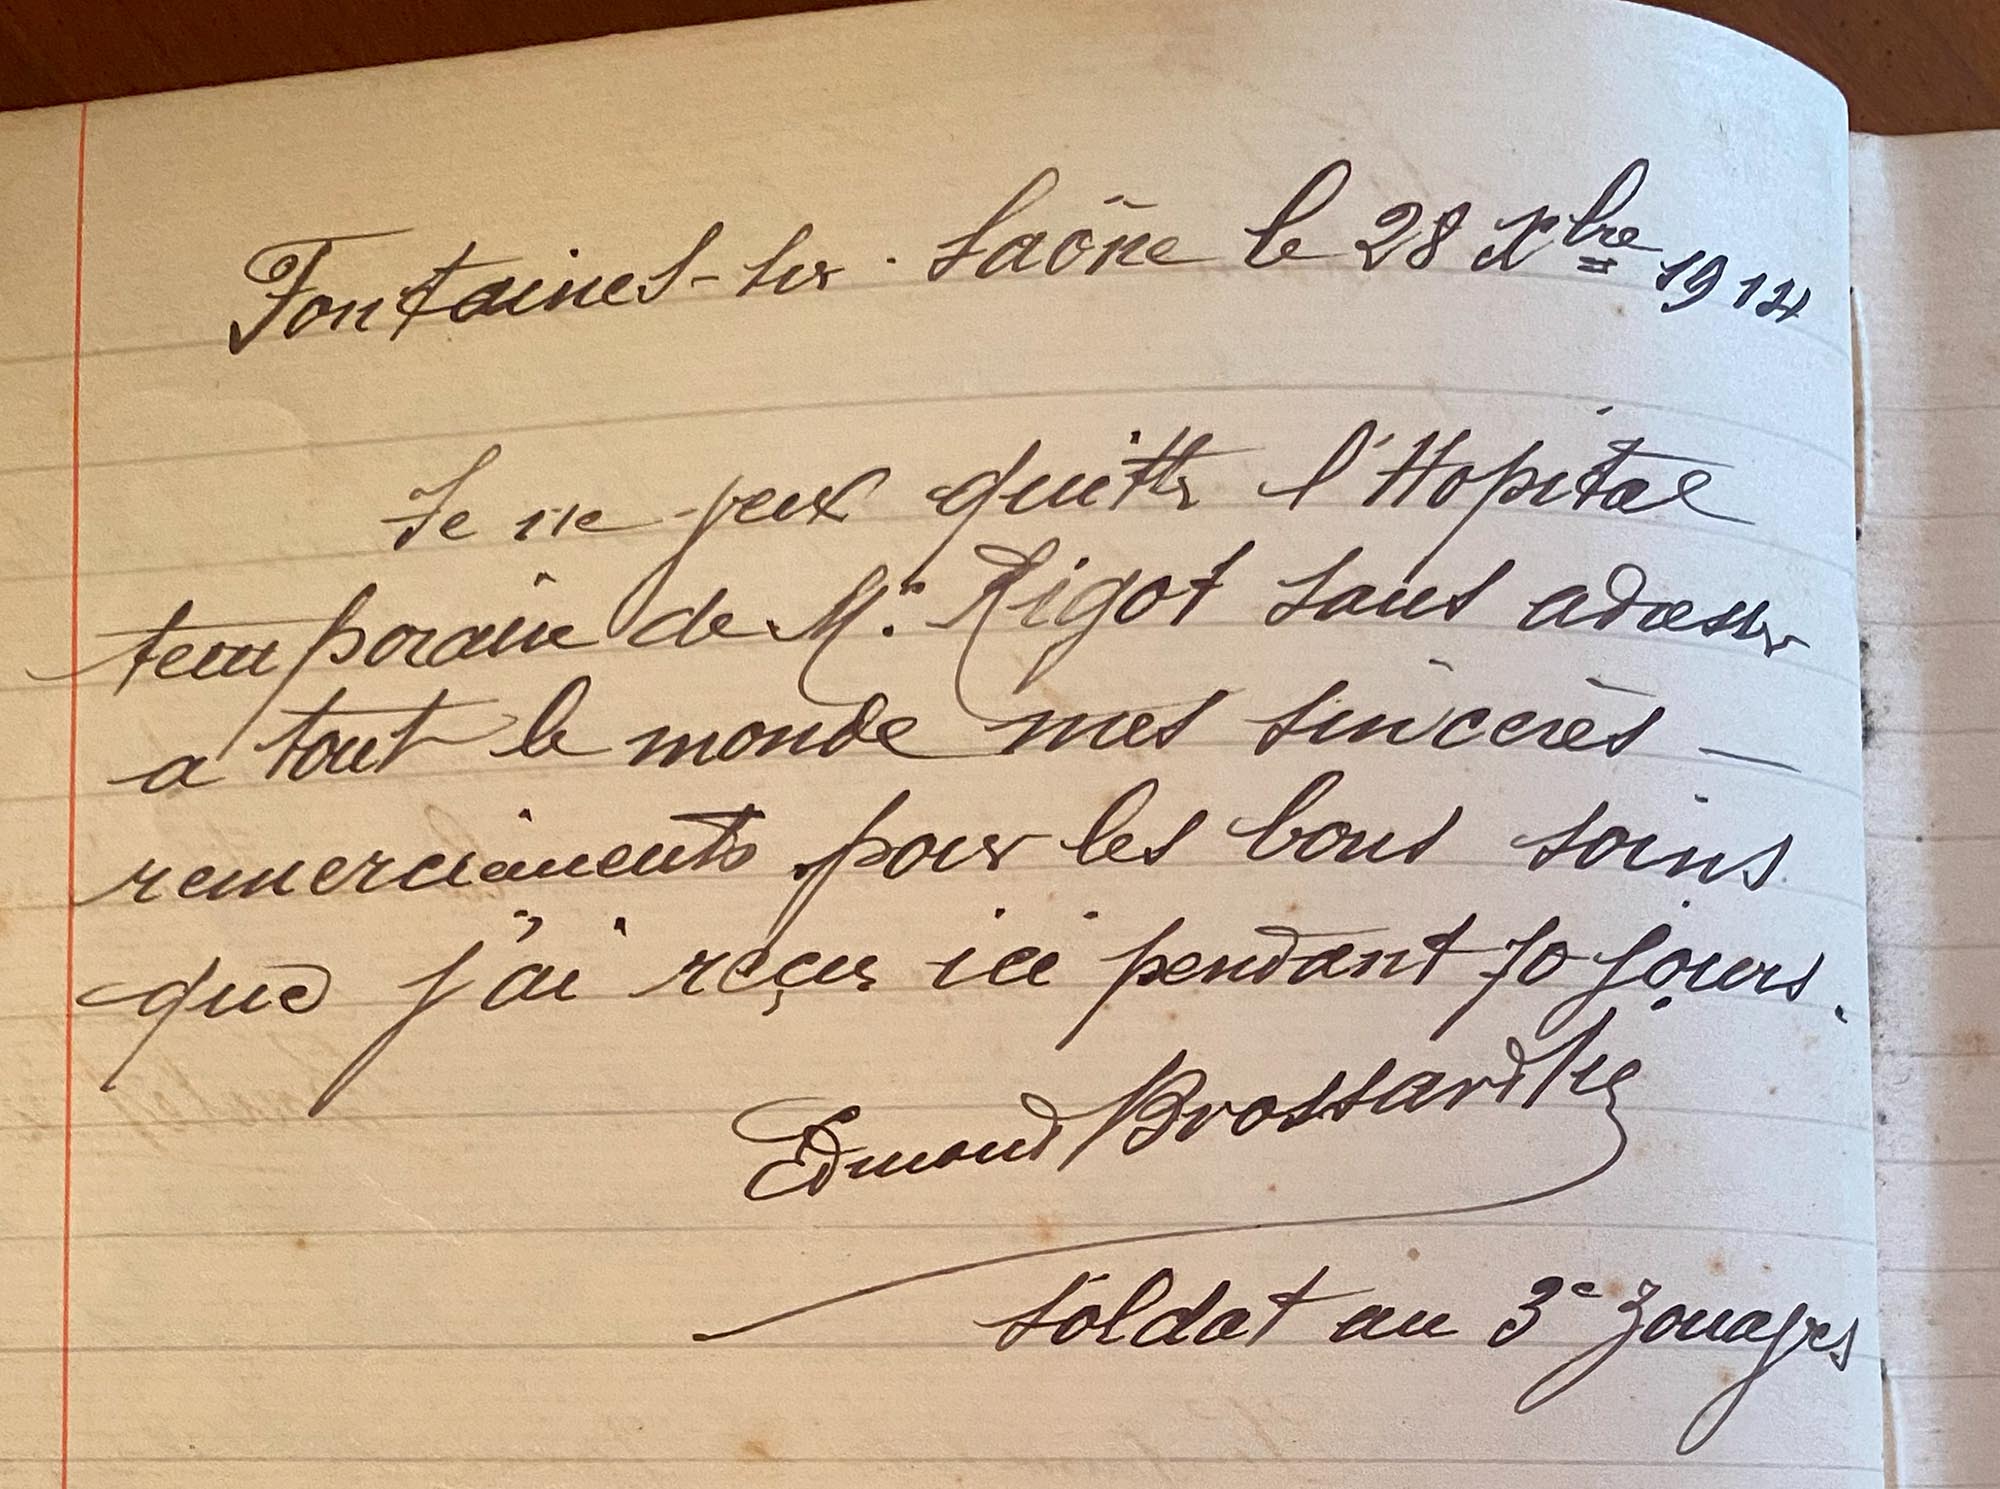 Fontaines-sur-Saône le 28 Xbre 1914
Je ne peux quitter l'Hopital
temporaire de Mr. Rigot sans adresser
a tout le monde mes sincères –
remerciements pour les bons soins
que j'ai reçus ici pendant 70 jours.
Edmond Brossard
soldat au 3e Zouaves